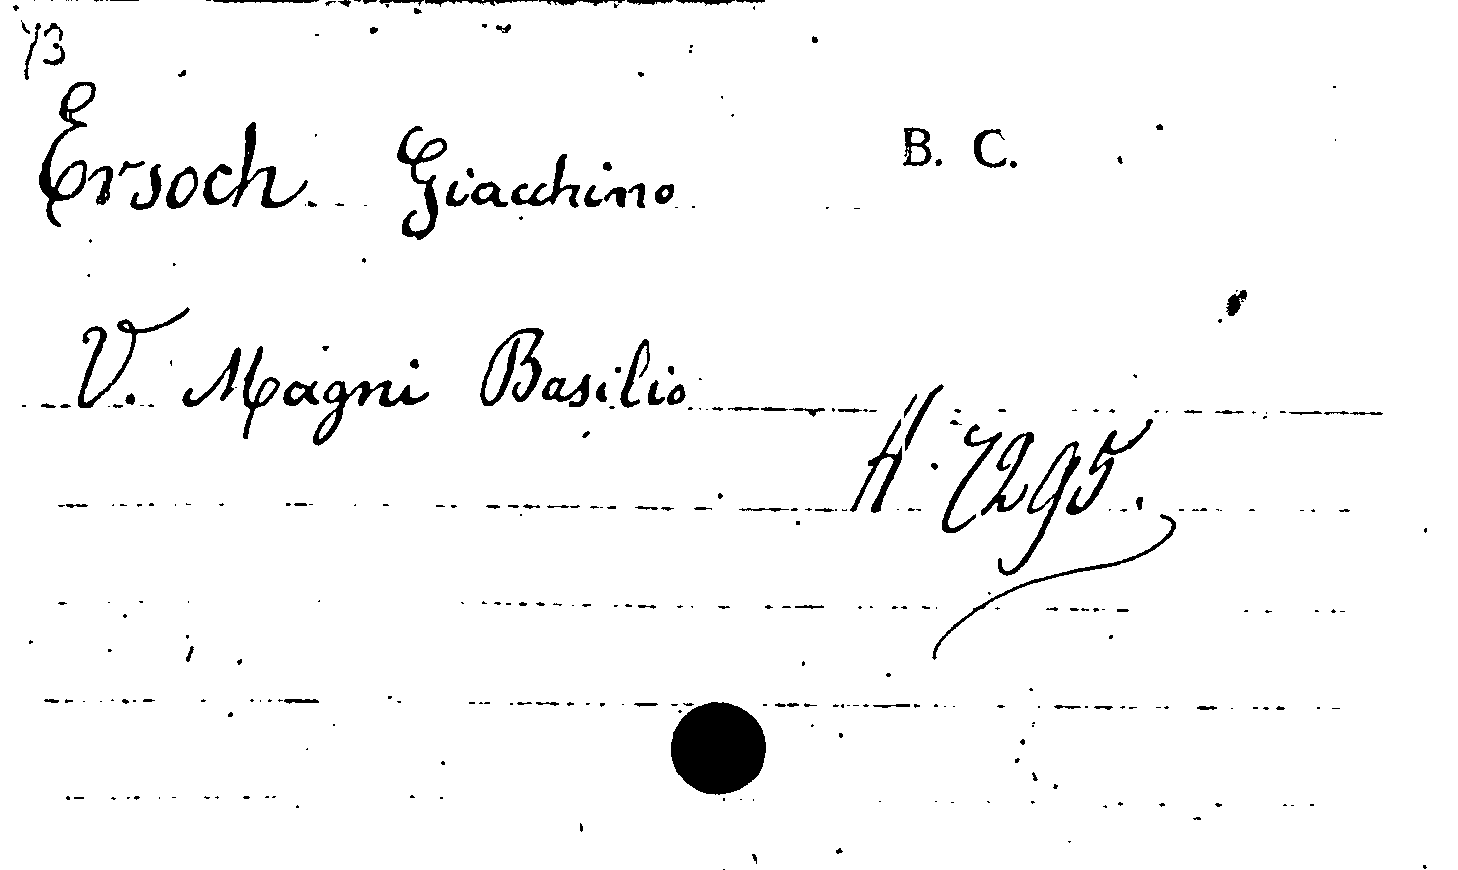 73
Ersoch Giacchino B. C.
V. Magni Basilio
A. 7295.